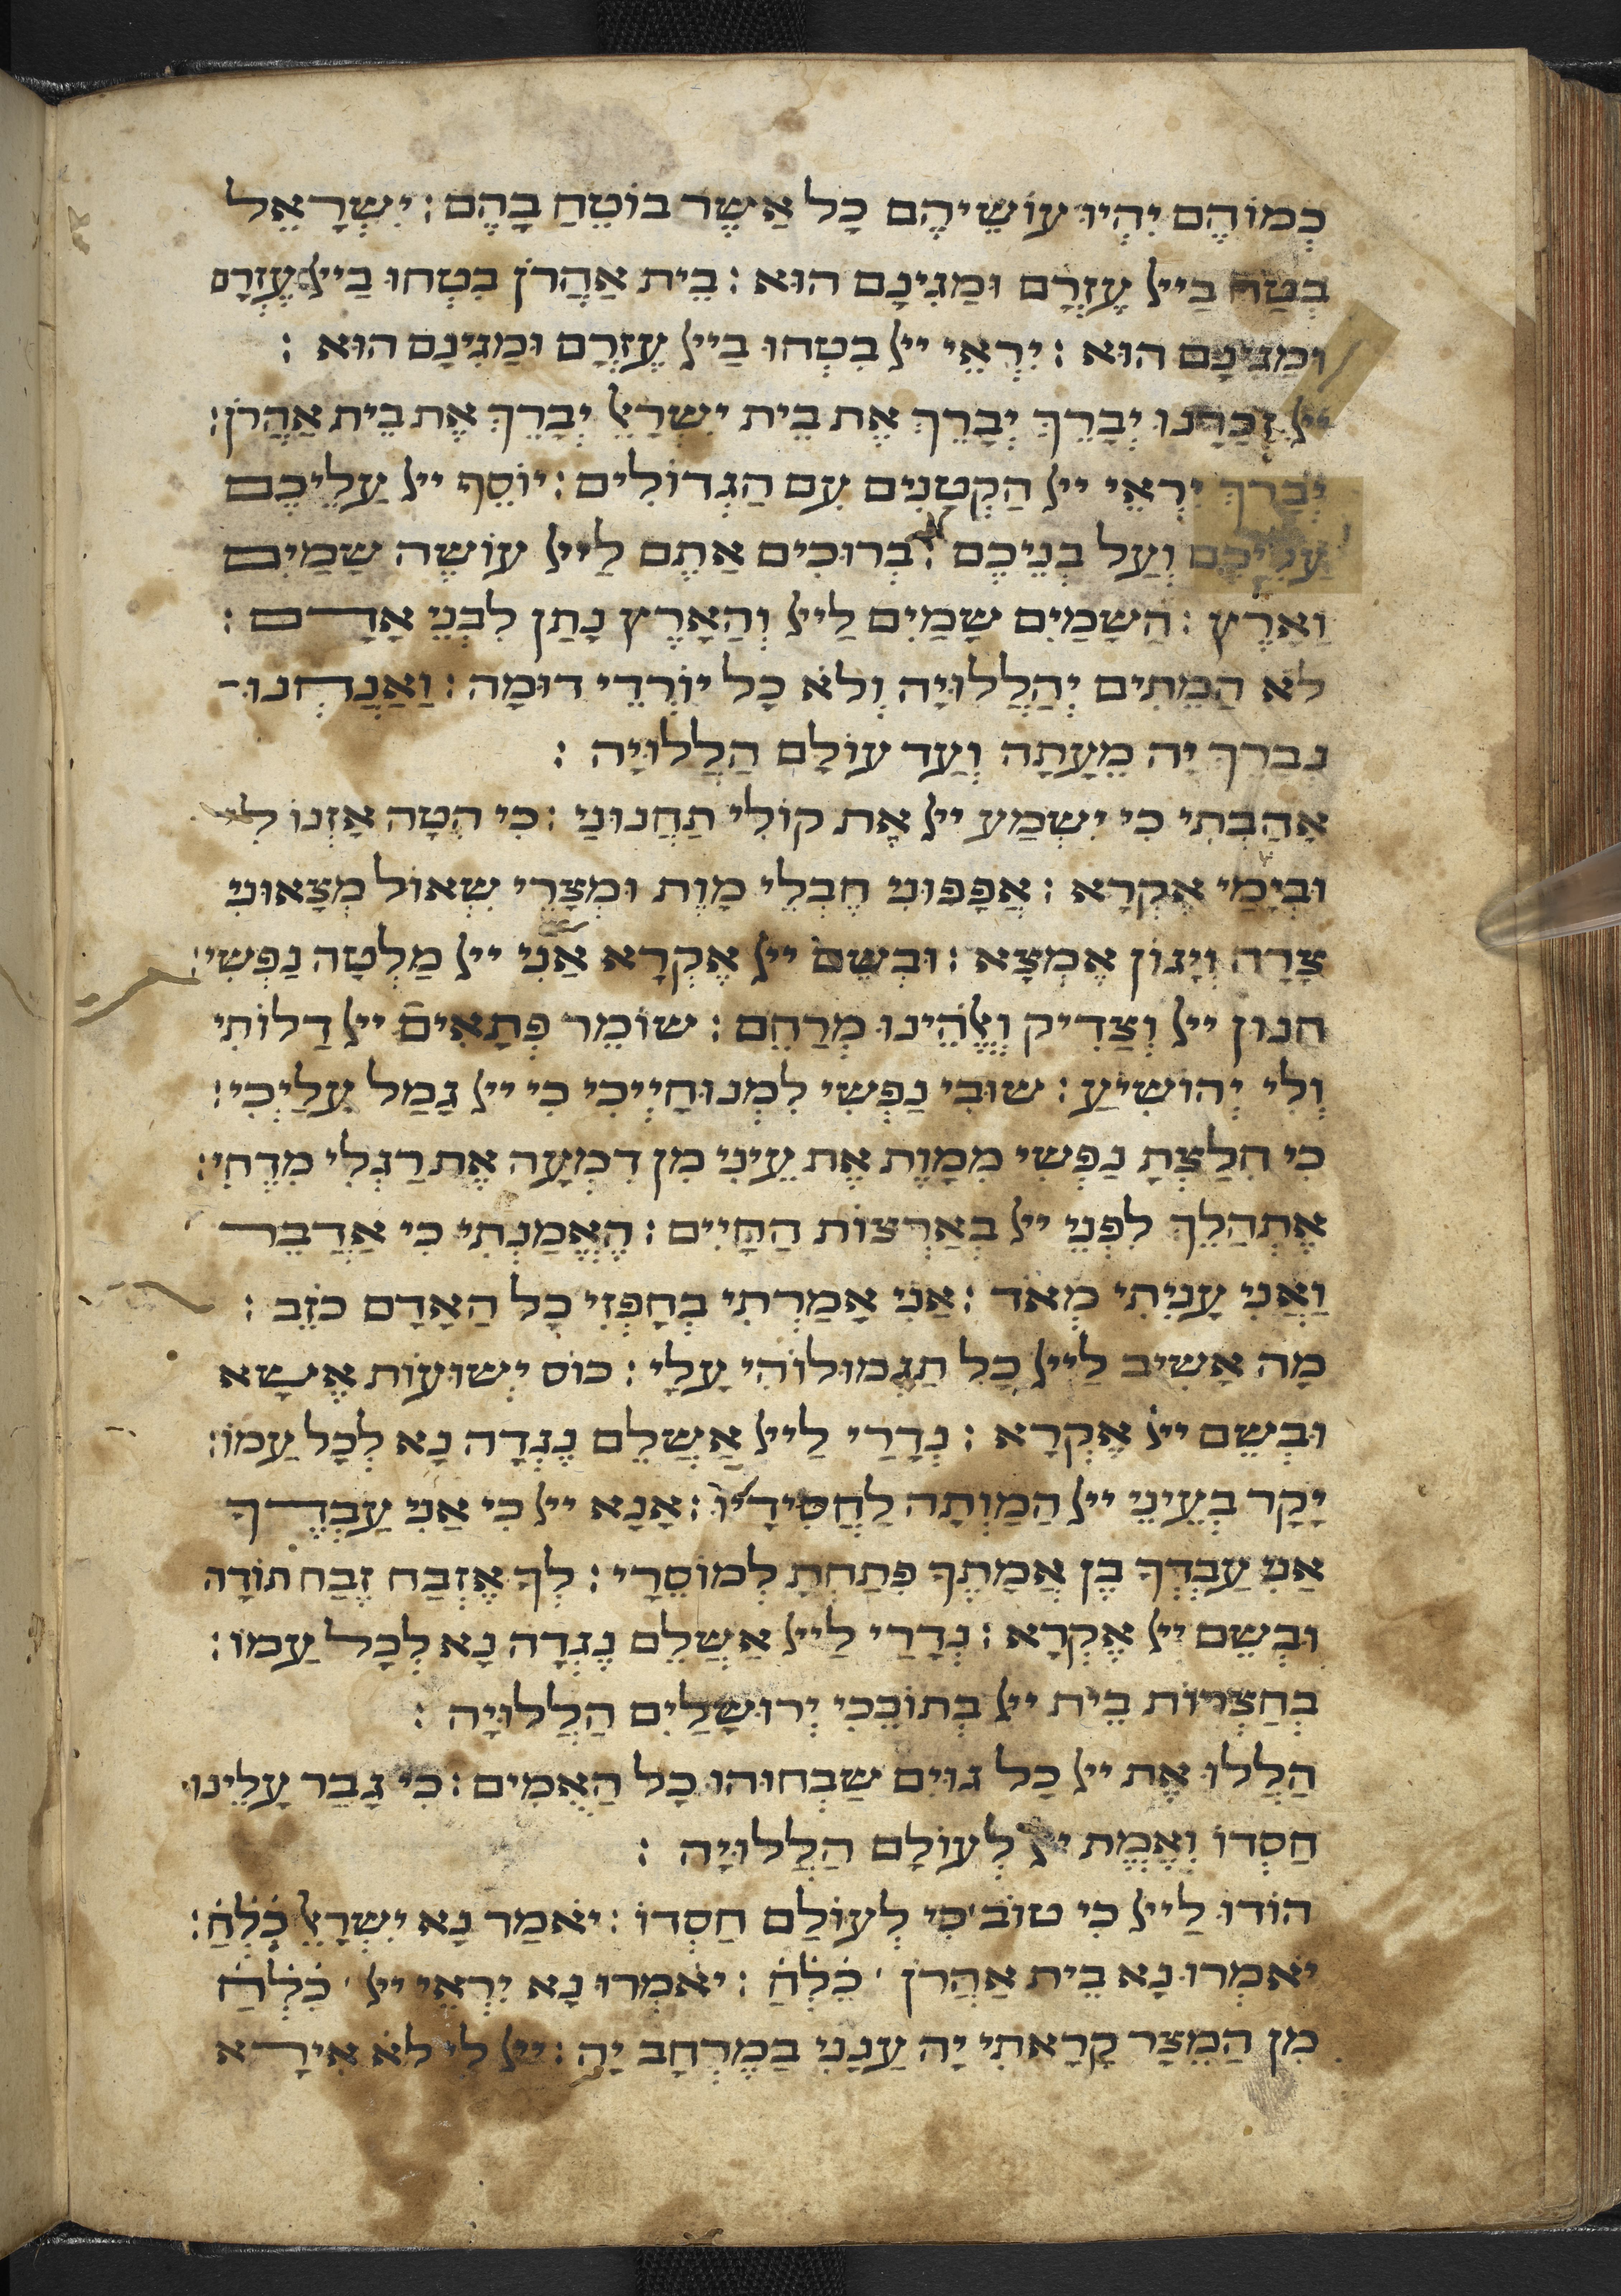 כְּמוֹהֶם יִהְיוּ עוֹשֵׂיהֶם כָל אַשֶר בוֹטֵחַ בָהֶם : יִשְרָאֵל
בְטַח בַייי עֶזְרָם וּמַגִינָם הוּא : בֵית אַהֲרֹן בִטְחוּ בַייי עֶזְרָם
וּמַגִינָם הוּא : יִרְאֵי ייי בִטְחוּ בַייי עֶזְרָם וּמַגִינָם הוּא :
ייי זְכָרָנוּ יְבָרֵךְ יְבָרֵךְ אֶת בֵית יִשְרָאֵל יְבָרֵךְ אֶת בֵית אַהֲרֹן :
יְבָרֵךְ יִרְאֵי ייי הַקְטַנִים עִם הַגְדוֹלִים : יוֹסֵף ייי עַלֵיכֶם
עַלֵיכֶם וְעַל בְנֵיכֶם : בְרוּכִים אַתֶם לַייי עוֹשֶה שָמַיִם
וָאָרֶץ : הַשָמַיִם שָמַיִם לַייי וְהַאָרֶץ נָתַן לִבְנֵי אָדָם :
לֹא הַמֵתִים יְהַלֲלוּיָה וְלֹא כָל יוֹרְדֵי דוּמָה : וַאַנַחְנוּ
נְבָרֵךְ יָה מֵעָתָה וְעַד עוֹלָם הַלֲלוּיָה :
אָהַבְתִי כִי יִשְמַע ייי אֶת קוֹלִי תַחֲנוּנַי : כִי הִטָה אָזְנוֹ לִי
וּבְיָמַי אֶקְרָא : אֲפָפוּנִי חֶבְלֵי מָוֶת וּמְצָרֵי שְאוֹל מְצָאוּנִי
צָרָה וְיָגוֹן אֶמְצָא : וּבְשֵם ייי אֶקְרָא אָנִי ייי מַלְטָה נַפְשִי :
חנון ייי וְצַדִיק וֶאֱלֹהֵינוּ מְרַחֵם : שוֹמֵר פְתָאִים ייי דַלוֹתִי
וְלִי יְהוֹשִיעַ : שוּבִי נַפְשִי לִמְנוּחָיְיכִי כִי ייי גָמַל עָלַיְכִי :
כִי חִלַצְתָ נַפְשִי מִמָוֶת אֶת עֵינִי מִן דִמְעָה אֶת רַגְלִי מִדֶחִי :
אֶתְהַלֵךְ לִפְנֵי ייי בְאַרְצוֹת הַחַיִים : הֶאֱמַנְתִי כִי אַדַבֵר
וַאֲנִי עָנִיתִי מְאֹד : אַנִי אָמַרְתִי בְחָפְזִי כָל הַאָדָם כֹזֵב :
מָה אָשִיב לַייי כָל תַגְמוּלוֹהִי עָלָי : כוֹס יְשוּעוֹת אֶשָא
וּבְשֵם ייי אֶקְרָא : נְדָרַי לַייי אַשֲלֵם נֶגְדָה נָא לְכָל עַמוֹ :
יָקָר בְעֵינֵי ייי הַמַוְתָה לַחֲסִידָיו : אָנָא ייי כִי אַנִי עַבְדֶךָ
אַנִי עַבְדְךָ בֶן אֲמָתֶךָ פִתַחְתָ לְמוֹסֵרָי : לְךָ אֶזְבַח זֶבַח תוֹדָה
וּבְשֵם ייי אֶקְרָא : נְדָרַי לַייי אַשֲלֵם נֶגְדָה נָא לְכָל עַמוֹ :
בְחַצְרוֹת בֵית ייי בְתוֹכֵכִי יְרוּשָלַיִם הַלֲלוּיָה :
הַלֲלוּ אֶת ייי כָל גוּיִם שַבְחוּהוּ כָל הַאֻמִים : כִי גָבַר עָלֵינוּ
חַסְדוֹ וֶאֱמֶת ייי לְעוֹלָם הַלֲלוּיָה :
הוֹדוּ לַייי כִי טוֹב כִי לְעוֹלַם חַסְדוֹ : יֹאמַר נָא יִשְרָאֵל כִלְחַ :
יֹאמְרוּ נָא בֵית אַהֲרֹן כִלְחַ : יֹאמְרוּ נָא יִרְאֵי ייי כִלְחַ
מִן הַמֵצָר קָרָאתִי יָה עַנָנִי בַמֶרְחָב יָה : ייי לִי לֹא אִירָא